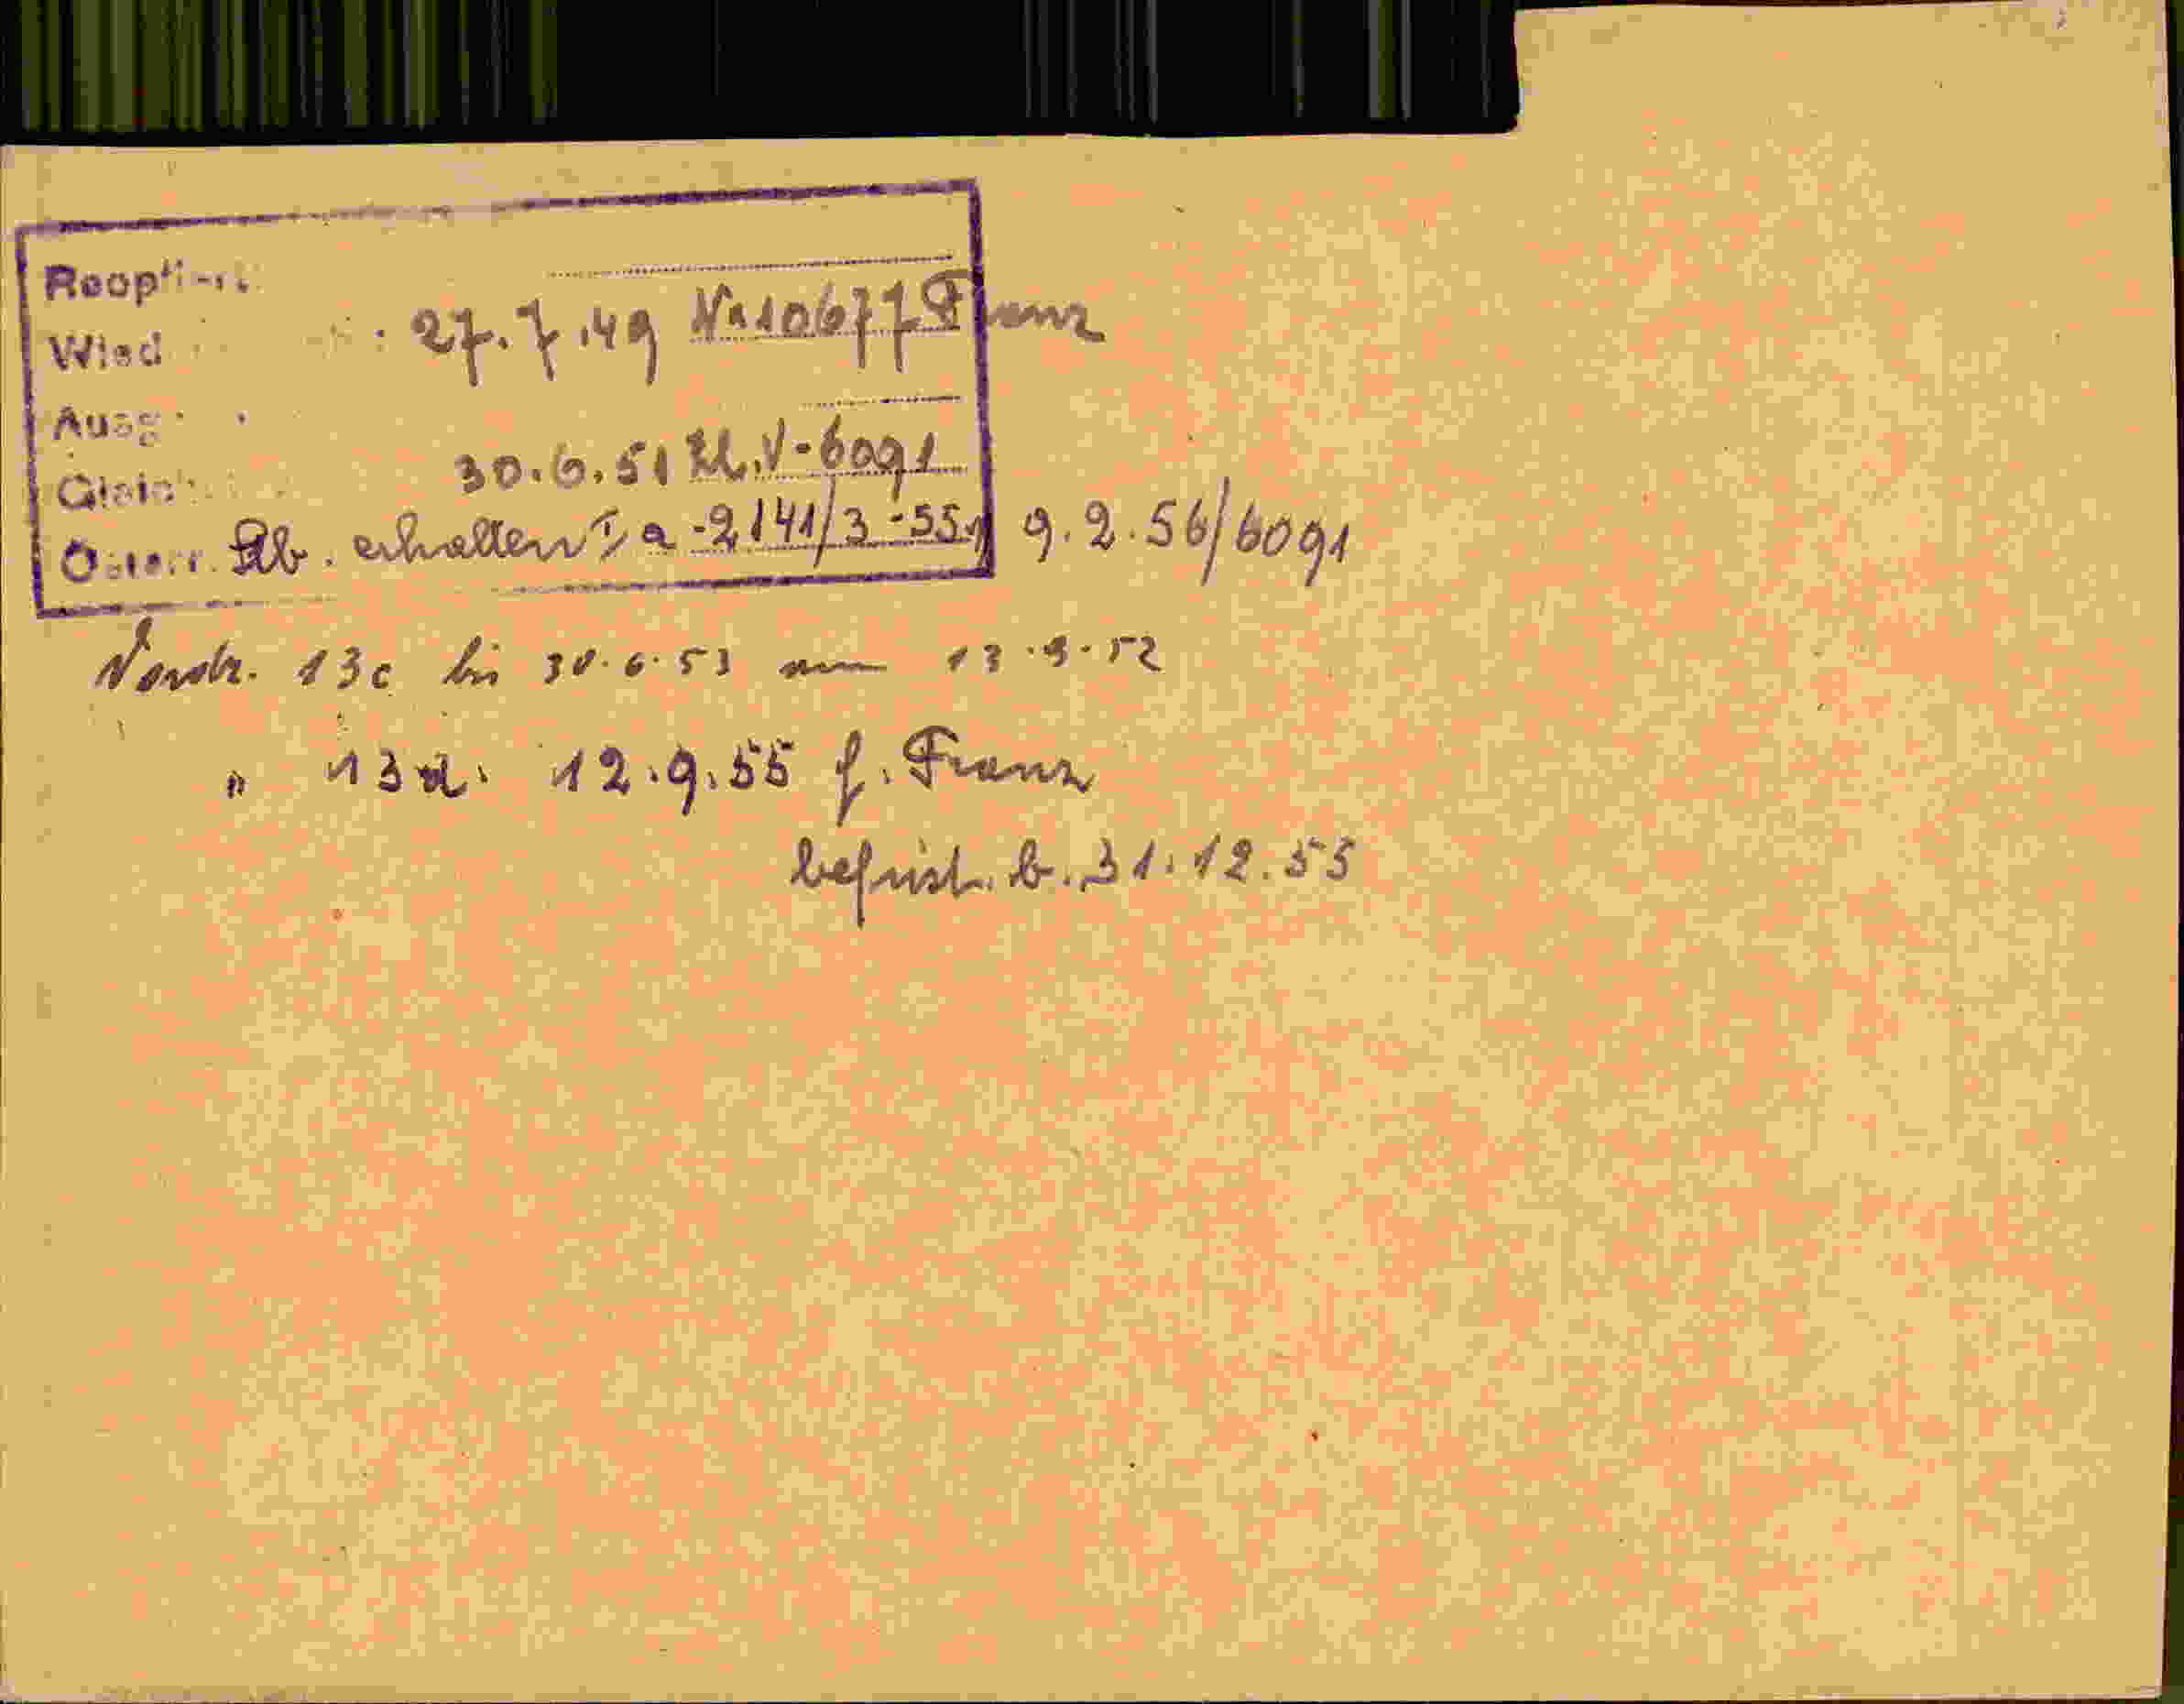 Reoptiert
Wied : 27.7.49 Na 10677 Franz
Ausg
Gleich 30.6.51 Zl. V-6091
Österr. Stb. erhalten I a -2141/3-55 9.2.56/6091
Vordr. 13c bis 30.6.53 vom 13.9.52
" 13d. 12.9.55 f. Franz
befrist. b. 31.12.55